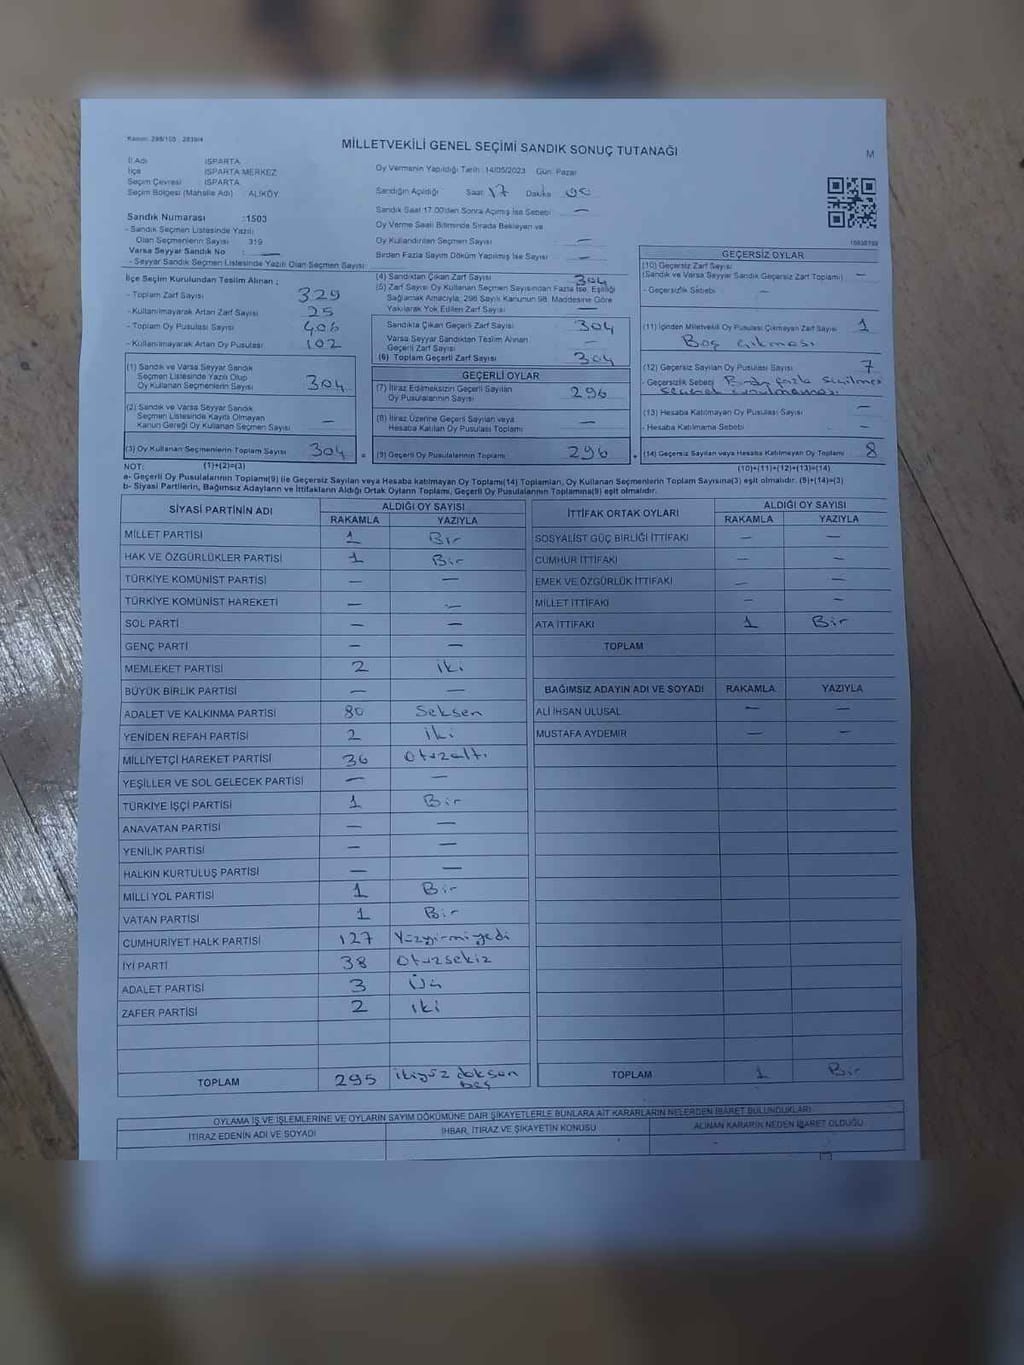 Kanun: 298/105 - 2839/4
MİLLETVEKİLİ GENEL SEÇİMİ SANDIK SONUÇ TUTANAĞI
M
İl Adı ISPARTA
İlçe ISPARTA MERKEZ
Seçim Çevresi ISPARTA
Seçim Bölgesi (Mahalle Adı) ALİKÖY
Sandık Numarası :1503
- Sandık Seçmen Listesinde Yazılı
Olan Seçmenlerin Sayısı 319
Varsa Seyyar Sandık No : —
- Seyyar Sandık Seçmen Listesinde Yazılı Olan Seçmen Sayısı
Oy Vermenin Yapıldığı Tarih: 14/05/2023 Gün: Pazar
Sandığın Açıldığı Saat 17 Dakika 00
Sandık Saat 17.00'den Sonra Açılmış İse Sebebi —
Oy Verme Saati Bitiminde Sırada Bekleyen ve
Oy Kullandırılan Seçmen Sayısı —
Birden Fazla Sayım Döküm Yapılmış İse Sayısı —
İlçe Seçim Kurulundan Teslim Alınan ;
- Toplam Zarf Sayısı 329
- Kullanılmayarak Artan Zarf Sayısı 25
- Toplam Oy Pusulası Sayısı 406
- Kullanılmayarak Artan Oy Pusulası 102
(1) Sandık ve Varsa Seyyar Sandık
Seçmen Listesinde Yazılı Olup
Oy Kullanan Seçmenlerin Sayısı 304
(2) Sandık ve Varsa Seyyar Sandık
Seçmen Listesinde Kayıtlı Olmayan
Kanun Gereği Oy Kullanan Seçmen Sayısı —
(3) Oy Kullanan Seçmenlerin Toplam Sayısı 304
(4) Sandıktan Çıkan Zarf Sayısı 304
(5) Zarf Sayısı Oy Kullanan Seçmen Sayısından Fazla İse, Eşitliği
Sağlamak Amacıyla, 298 Sayılı Kanunun 98. Maddesine Göre
Yakılarak Yok Edilen Zarf Sayısı —
Sandıkta Çıkan Geçerli Zarf Sayısı 304
Varsa Seyyar Sandıktan Teslim Alınan
Geçerli Zarf Sayısı —
(6) Toplam Geçerli Zarf Sayısı 304
GEÇERLİ OYLAR
(7) İtiraz Edilmeksizin Geçerli Sayılan
Oy Pusulasının Sayısı 296
(8) İtiraz Üzerine Geçerli Sayılan veya
Hesaba Katılan Oy Pusulası Toplamı —
(9) Geçerli Oy Pusulalarının Toplamı 296
GEÇERSİZ OYLAR
(10) Geçersiz Zarf Sayısı
(Sandık ve Varsa Seyyar Sandık Geçersiz Zarf Toplamı) —
- Geçersizlik Sebebi —
(11) İçinden Milletvekili Oy Pusulası Çıkmayan Zarf Sayısı 1
Boş çıkması
(12) Geçersiz Sayılan Oy Pusulası Sayısı 7
- Geçersizlik Sebebi fazla
(13) Hesaba Katılmayan Oy Pusulası Sayısı —
- Hesaba Katılmama Sebebi —
(14) Geçersiz Sayılan veya Hesaba Katılmayan Oy Toplamı 8
NOT: (1)+(2)=(3) (10)+(11)+(12)+(13)=(14)
a- Geçerli Oy Pusulalarının Toplamı(9) ile Geçersiz Sayılan veya Hesaba katılmayan Oy Toplamı(14) Toplamları, Oy Kullanan Seçmenlerin Toplam Sayısına(3) eşit olmalıdır. (9)+(14)=(3)
b- Siyasi Partilerin, Bağımsız Adayların ve İttifakların Aldığı Ortak Oyların Toplamı, Geçerli Oy Pusulalarının Toplamına(9) eşit olmalıdır.
SİYASİ PARTİNİN ADI ALDIĞI OY SAYISI
RAKAMLA YAZIYLA
MİLLET PARTİSİ 1 Bir
HAK VE ÖZGÜRLÜKLER PARTİSİ 1 Bir
TÜRKİYE KOMÜNİST PARTİSİ — —
TÜRKİYE KOMÜNİST HAREKETİ — —
SOL PARTİ — —
GENÇ PARTİ — —
MEMLEKET PARTİSİ 2 iki
BÜYÜK BİRLİK PARTİSİ — —
ADALET VE KALKINMA PARTİSİ 80 Seksen
YENİDEN REFAH PARTİSİ 2 iki
MİLLİYETÇİ HAREKET PARTİSİ 36 Otuzaltı
YEŞİLLER VE SOL GELECEK PARTİSİ — —
TÜRKİYE İŞÇİ PARTİSİ 1 Bir
ANAVATAN PARTİSİ — —
YENİLİK PARTİSİ — —
HALKIN KURTULUŞ PARTİSİ — —
MİLLİ YOL PARTİSİ 1 Bir
VATAN PARTİSİ 1 Bir
CUMHURİYET HALK PARTİSİ 127 Yüzyirmiyedi
İYİ PARTİ 38 Otuzsekiz
ADALET PARTİSİ 3 Üç
ZAFER PARTİSİ 2 iki
TOPLAM 295 ikiyüz doksan
beş
İTTİFAK ORTAK OYLARI ALDIĞI OY SAYISI
RAKAMLA YAZIYLA
SOSYALİST GÜÇ BİRLİĞİ İTTİFAKI — —
CUMHUR İTTİFAKI — —
EMEK VE ÖZGÜRLÜK İTTİFAKI — —
MİLLET İTTİFAKI — —
ATA İTTİFAKI 1 Bir
TOPLAM
BAĞIMSIZ ADAYIN ADI VE SOYADI RAKAMLA YAZIYLA
ALİ İHSAN ULUSAL — —
MUSTAFA AYDEMİR — —
TOPLAM 1 Bir
OYLAMA İŞ VE İŞLEMLERİNE VE OYLARIN SAYIM DÖKÜMÜNE DAİR ŞİKAYETLERLE BUNLARA AİT KARARLARIN NELERDEN İBARET BULUNDUKLARI
İTİRAZ EDENİN ADI VE SOYADI İHBAR, İTİRAZ VE ŞİKAYETİN KONUSU ALINAN KARARIN NEDEN İBARET OLDUĞU